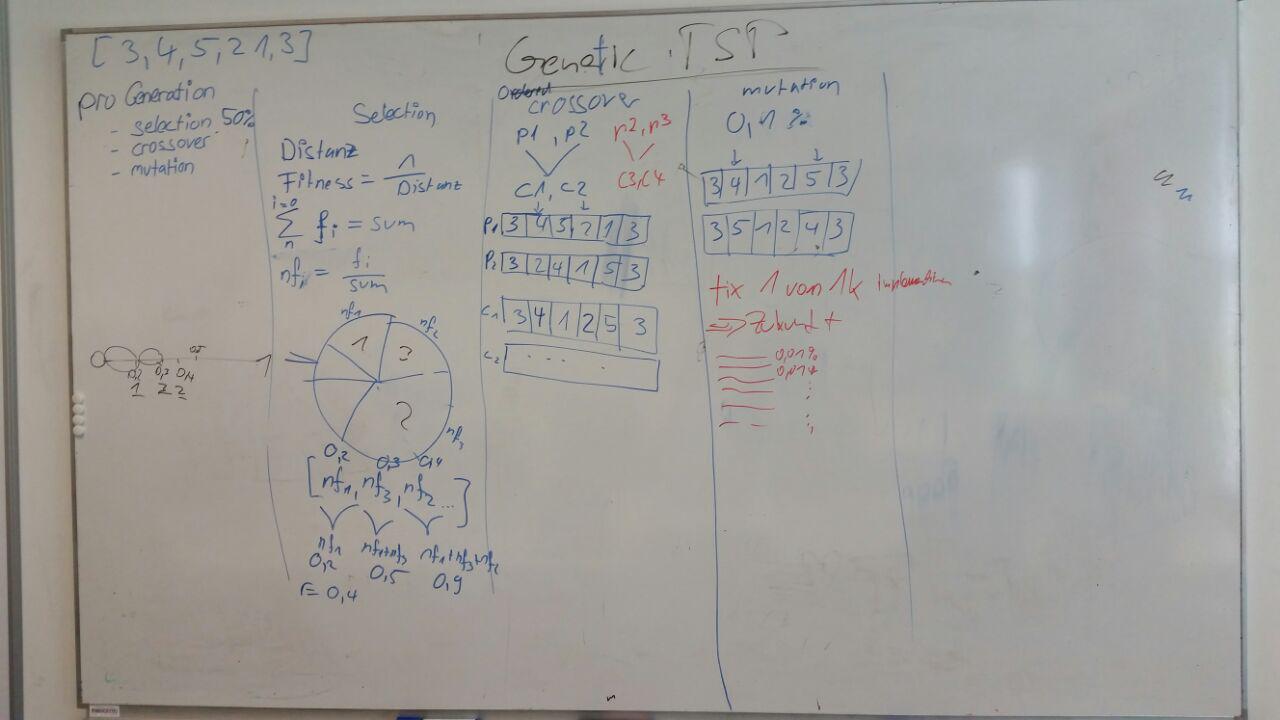 [3,4,5,2 1,3]
Genetic TSP
pro Generation
- selection 50%
- crossover
- mutation
Selection
Distanz
Fitness = 1 / Distanz
i=0
∑ fi = sum
n
nfi = fi / sum
nf1
nf2
1
3
2
nf3
1
0,2
0,3
0,4
[nf1, nf3, nf2 ...]
nf1
nf1+nf3
nf1+nf3+nf2
0,2
0,5
0,9
r=0,4
0,4
1
2
2
crossover
p1, p2
p2, p3
c1, c2
c3, c4
P1 3 4 5 2 1 3
P2 3 2 4 1 5 3
C1 3 4 1 2 5 3
C2 ...
mutation
0,1 %
3 4 1 2 5 3
3 5 1 2 4 3
fix 1 von 1k
=> Zukunft
0,01%
0,01%